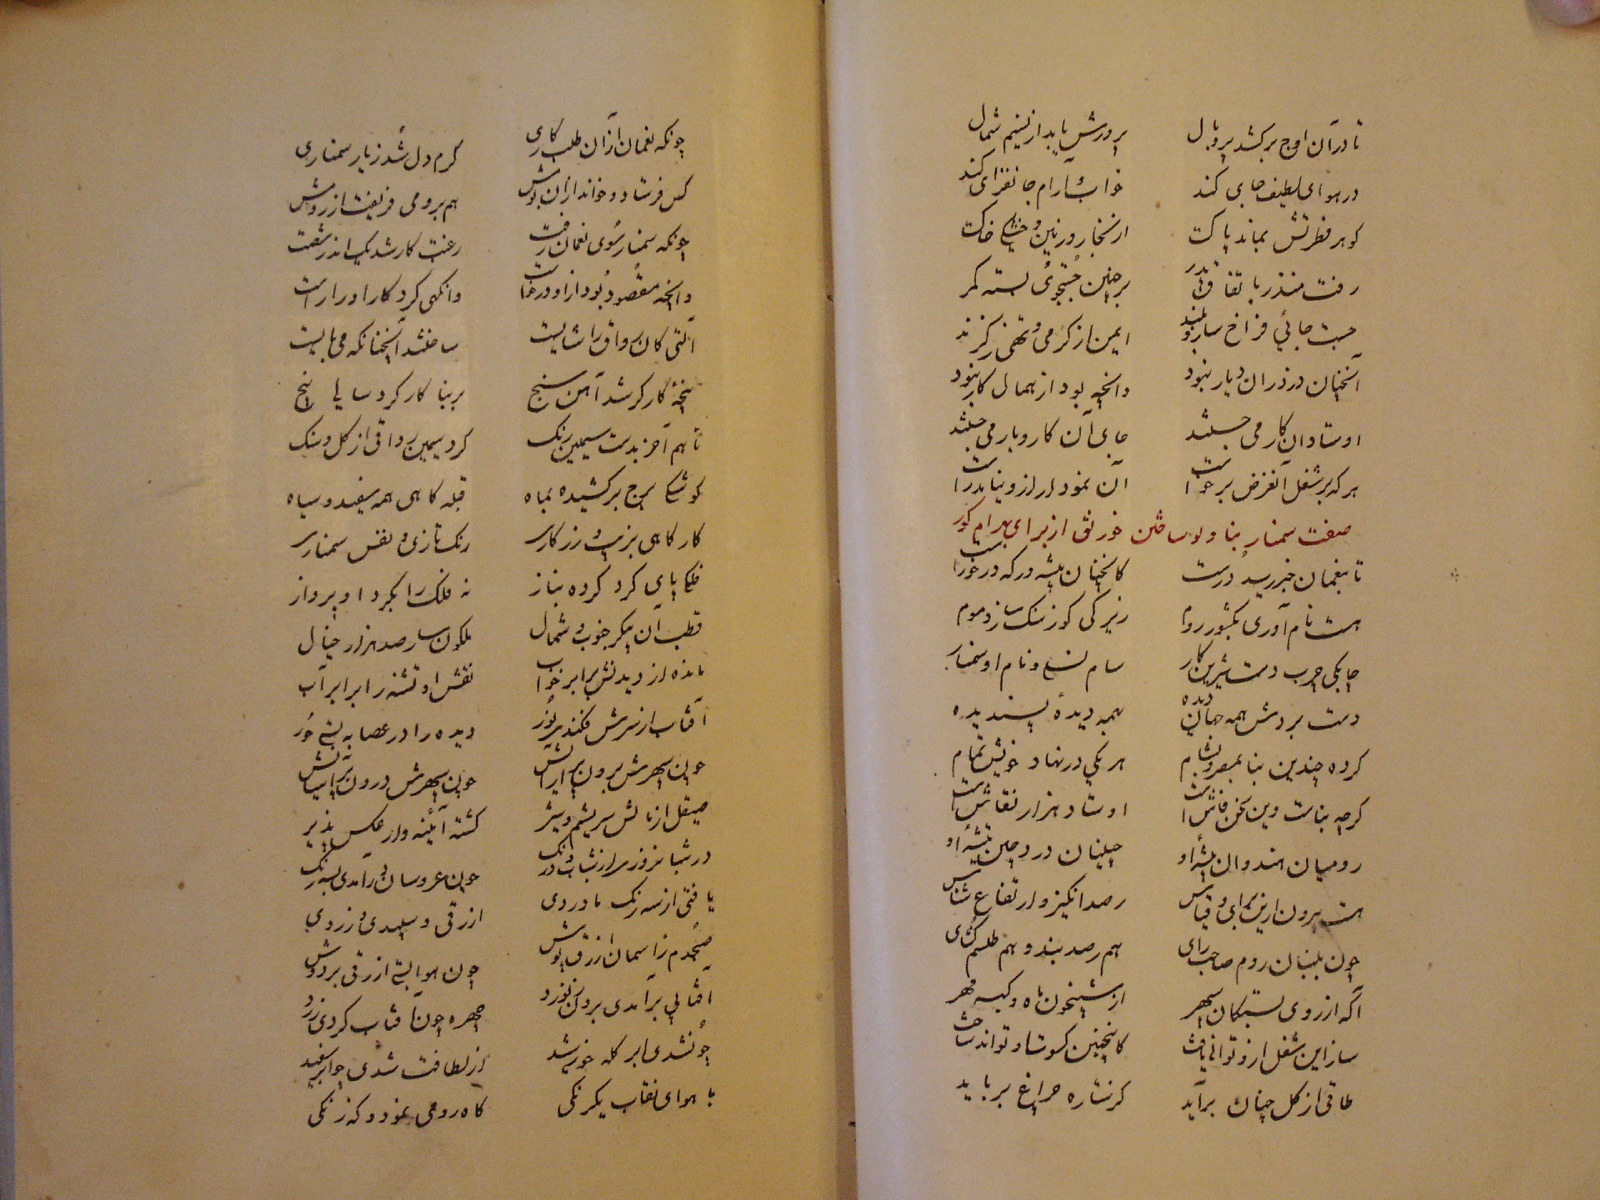 تا دران اوج برکشد پر و بال پرورش یابد از نسیم شمال
در هوای لطیف جای کند خواب و آرام جانفزای کند
کوهر فطرتش بماند پاک از بخار زمین و خشکی خاک
رفت منذر باتفاق پدر بر چنین جستجوی بسته کمر
جست جائی فراخ ساز بلند ایمن از کرمی و تهی ز کزند
آنچنان در دران دیار نبود وانچه بود از همال کار نبود
اوستادان کار می جستند جای آن کار و بار می جستند
هر که بر شغل آن غرض برخواست آن نمودار ازو نیامد راست
صفت سمنار بنا و ساختن خورنق از برای بهرام کور
تا بنعمان خبر رسید درست کانچنان پیشه ور که در خور تست
هست نام آوری بکشور روم زیرکی کو ز سنک سازد موم
چابکی چرب دست شیرین کار سام نسلی و نام او سمنار
دست بردش همه جهان دیده بهمه دیدهٔ پسندیده
کرده چندین بنا بمصر و بشام هر یکی در نهاد خویش تمام
کرچه بناست وین سخن فاش است اوستاد هزار نقاش است
رومیان هندوان پیشهٔ او چینیان درد چین تیشهٔ او
هست بیرون ازین برای و قیاس رصد انکیز و ارتفاع شناس
چون بلیناس روم صاحب رای هم رصد بند و هم طلسم کشای
آکه از روی بستکان سپهر از شبیخون ماه و کینه مهر
ساز این شغل ازو توانی یافت کاینچنین کسوت او تواند ساخت
طاقی از کل چنان برآید کز ستاره چراغ برباید
چونکه نعمان ازان طلب کاری کرم دل شد ز یار سمناری
کس فرستاد و خواند ازان بومش هم برومی فریفت از رومش
چونکه سمنار سوی نعمان رفت رغبت کار شد یک اندر شفت
وانچه مقصود بود ازاو درخواست وانکهی کرد کار او را راست
آلتی کان رواق را شایست ساختند آنچنانکه می بایست
پنجهٔ کارکر شد آهن سنج بر بنا کار کرد سالی پنج
تا هم آخر بدست سیمین رنک کرد سیمین رواقی از کل و سنک
کوشکی برج برکشیده بماه قبله کاهی همه سفید و سیاه
کارکاهی بزیب و زر کاری رنک نازی و نقش سمناری
فلکی پای کرد کرده بناز نه فلک را بکرد او پرواز
قطب آن پیکر جنوب و شمال ملکون سار صد هزار خیال
مانده از دیدنش برابر خواب نقش او تشنه را برابر آب
آفتاب از برش فکندی نور دیده را در عصابه بستی حور
چون سپهرش برون پر آرایش چون بهشتش درون پر آسایش
صیقل از مالش سریشم و شیر کشته آئینه وار عکس پذیر
در شبانروزی از شتاب و درنک چون عروسان برآمدی بسه رنک
یافتی از سه رنک ناوردی ازرقی و سپیدی و زردی
صبحدم ز آسمان ازرق پوش چون هوا بستی ازرقی بر دوش
آفتابی برآمدی بر نورد چهره چون آفتاب کردی زرد
چون شدی ابر کله خورشید از لطافت شدی چو ابر سفید
با هوای نقاب یکرنکی کاه رومی نمود و که زنکی